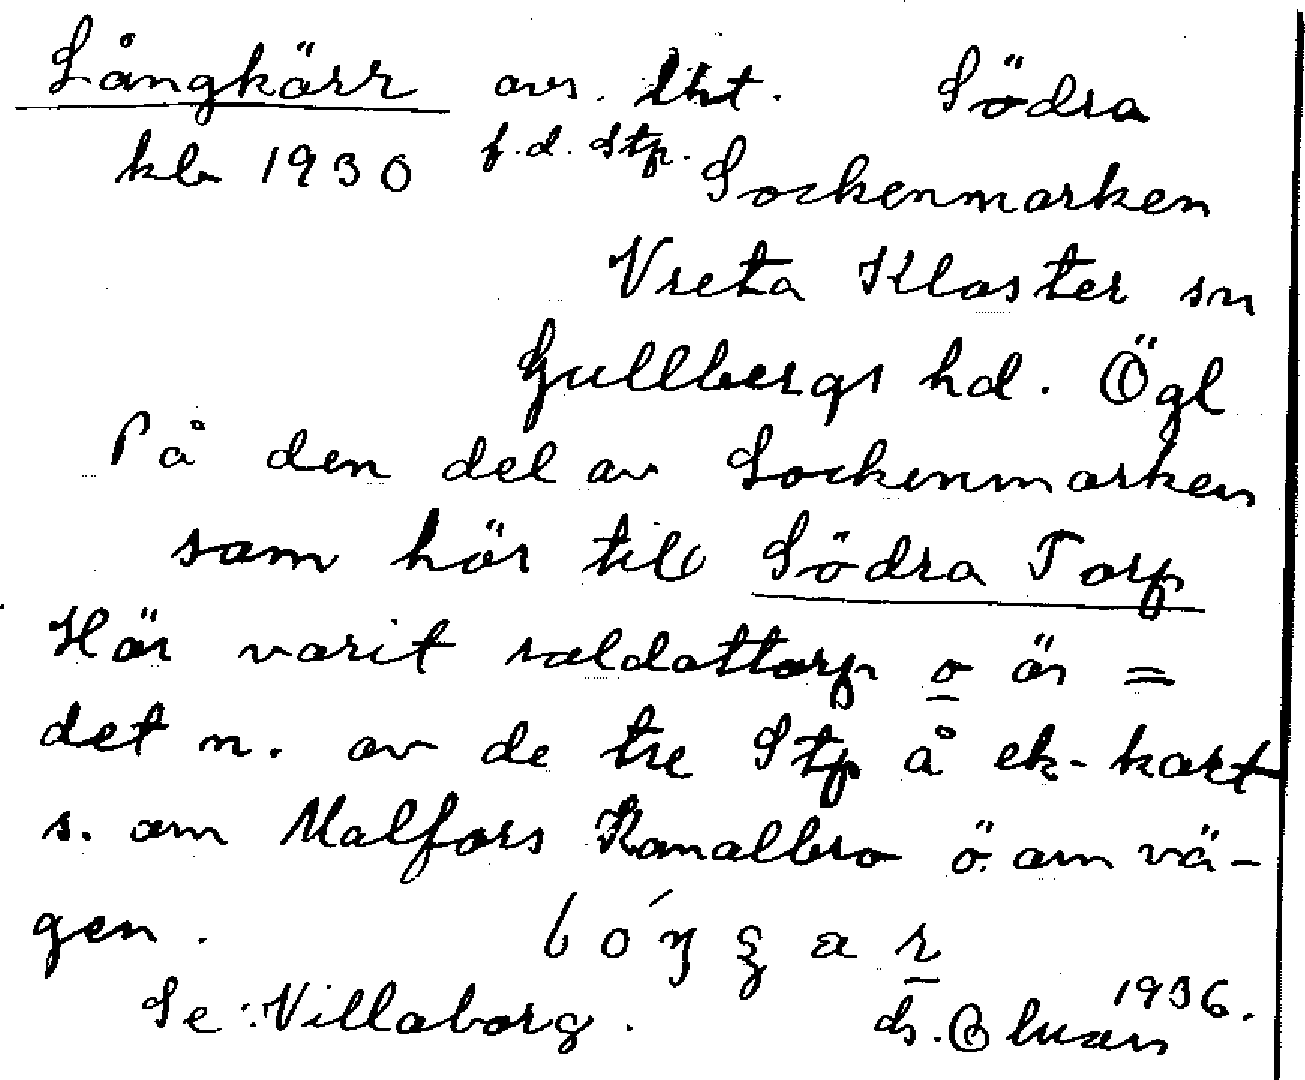 Långkärr avs. lht. Södra
kb 1930 f.d. Stp. Sockenmarken
Vreta Kloster sn
Gullbergs hd. Ögl
På den del av Sockenmarken
som hör till Södra Torp
Här varit soldattorp o är =
det n. av de tre Stp å ek-kart
s. om Malfors Kanalbro ö. om vä-
gen.
Se: Villaborg. 1936.